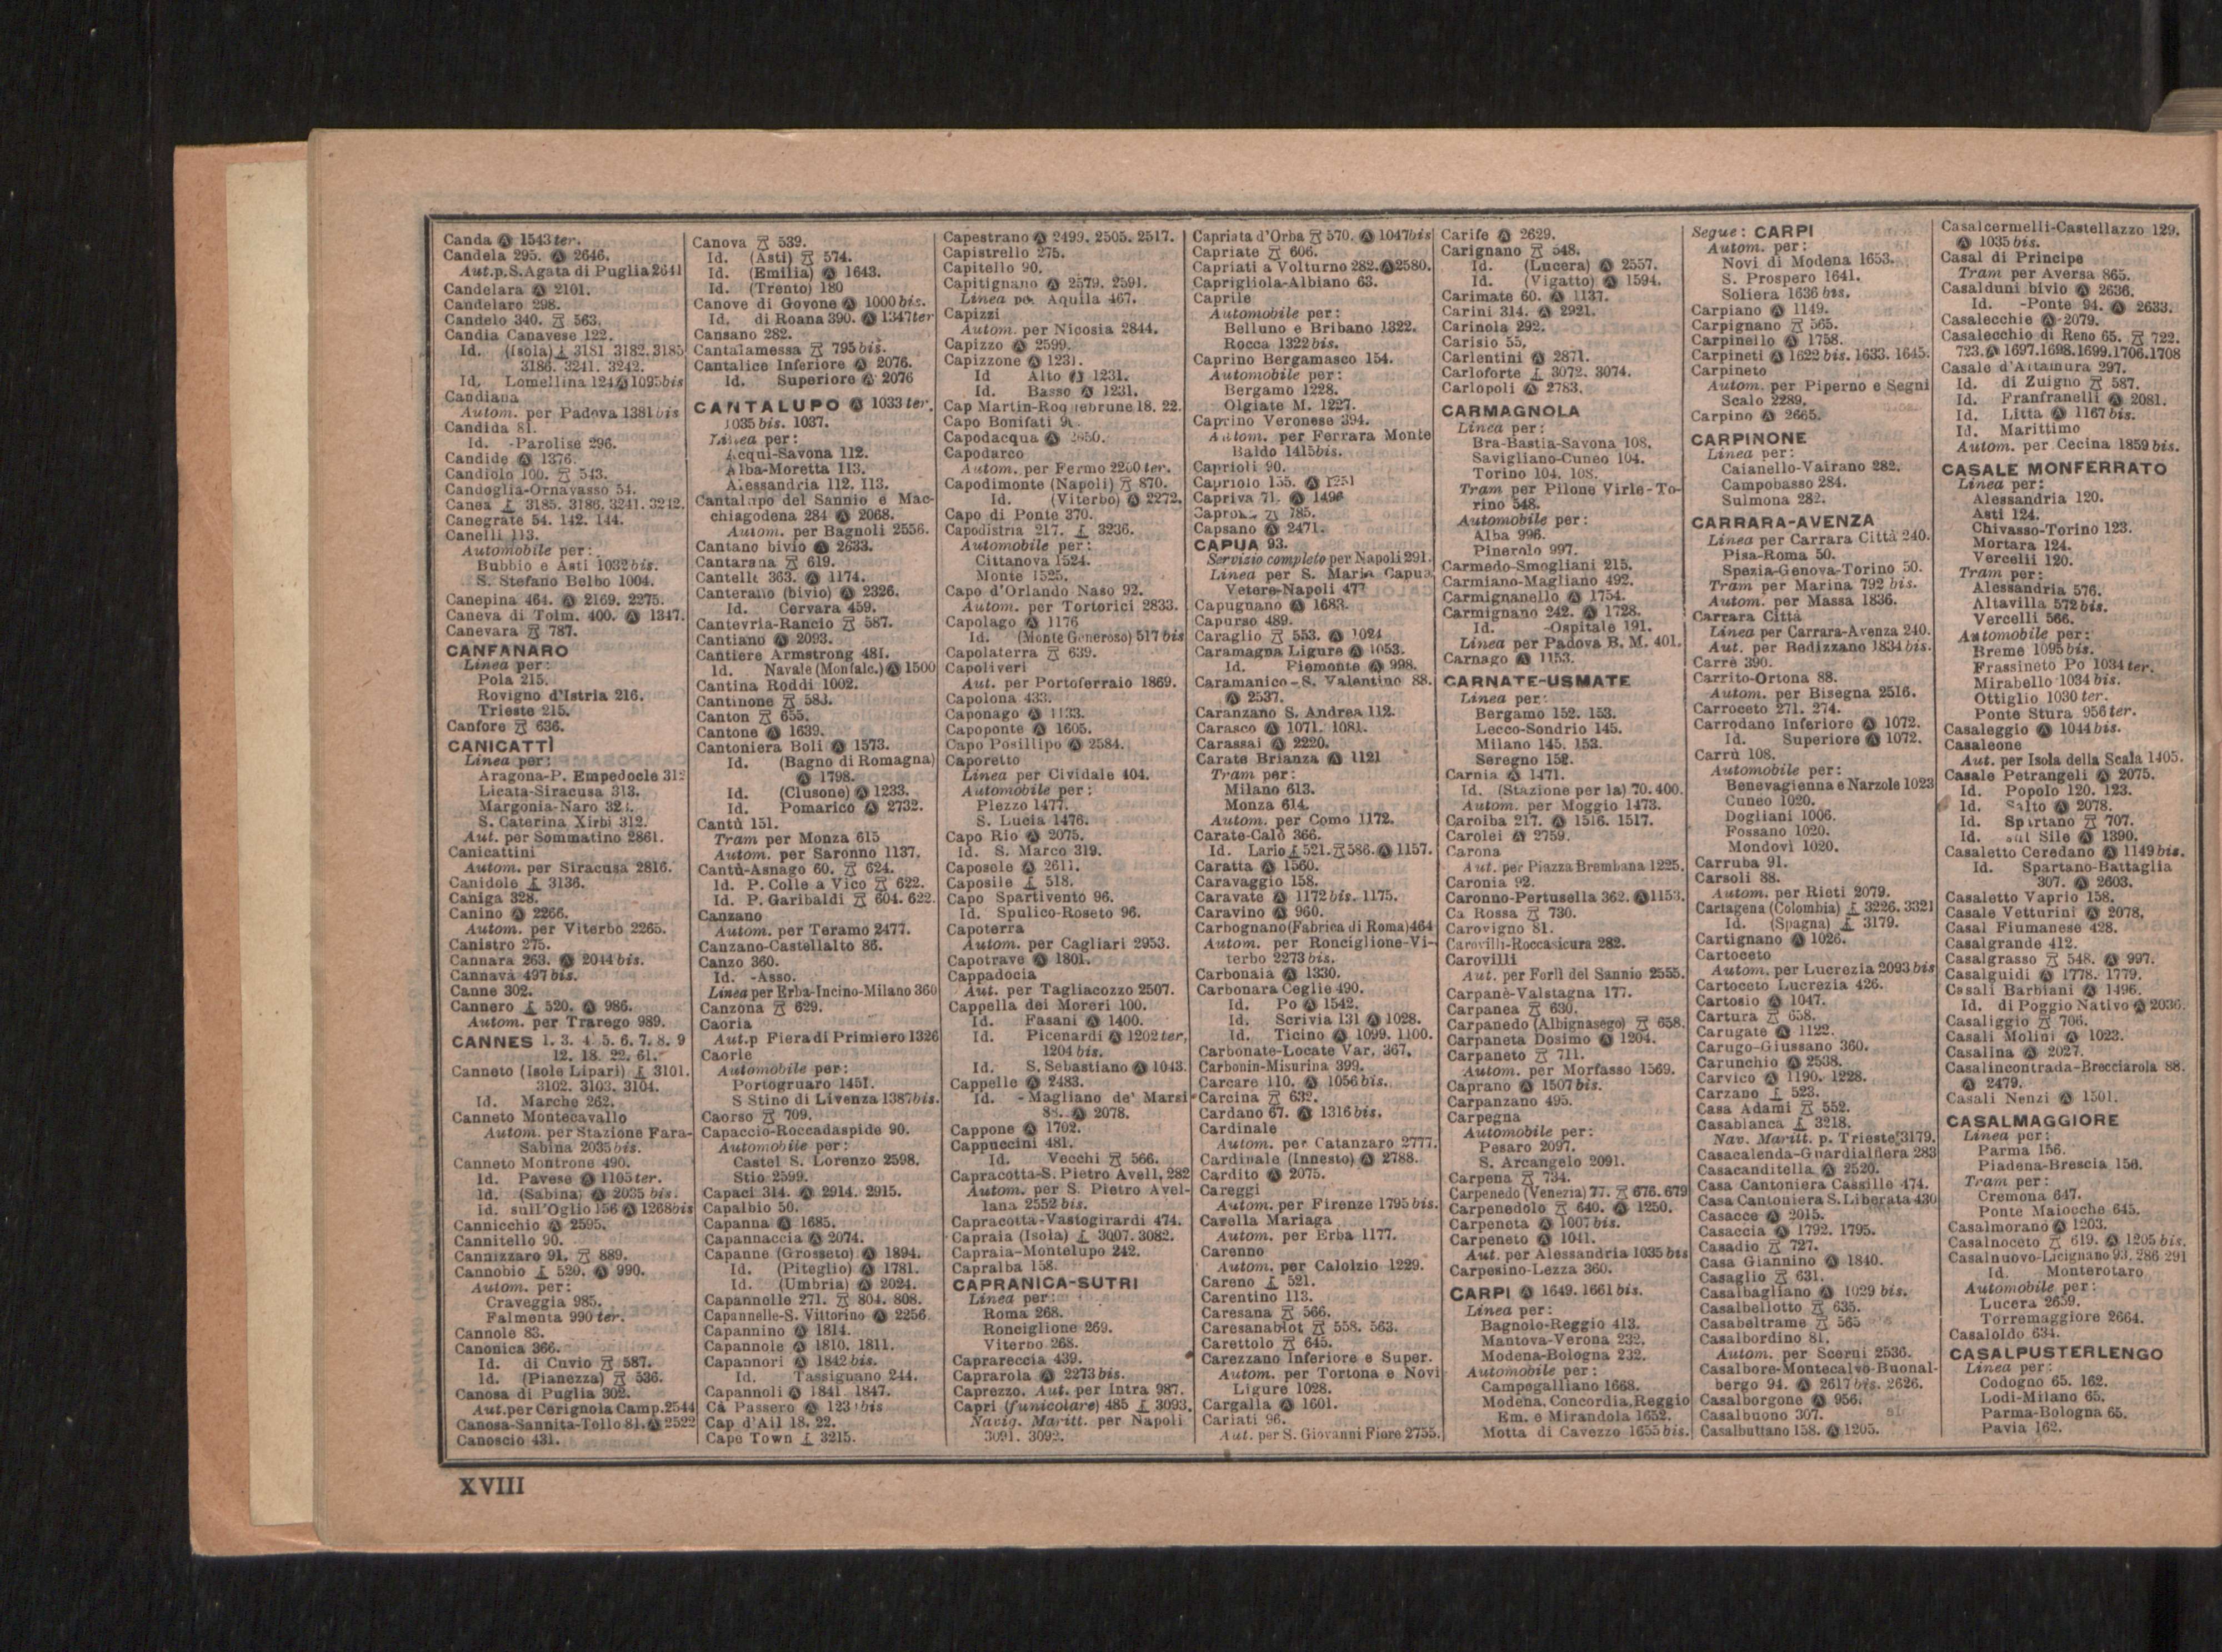 Canda Ⓐ 1543 ter.
Candela 295. Ⓐ 2646.
Aut. p. S. Agata di Puglia 2641
Candelara Ⓐ 2101.
Candelaro 298.
Candelo 340. 563.
Candia Canavese 122.
Id. (Isola) 3181 3182. 3185
3186. 3241. 3242.
Id. Lomellina 124 Ⓐ 1095 bis
Candiana
Autom. per Padova 1381 bis
Candida 81.
Id. -Parolise 296.
Candide Ⓐ 1376.
Candiolo 100. 543.
Candoglia-Ornavasso 54.
Canea 3185. 3186. 3241. 3242.
Canegrate 54. 142. 144.
Canelli 113.
Automobile per:
Bubbio e Asti 1032 bis.
S. Stefano Belbo 1004.
Canepina 464. Ⓐ 2169. 2275.
Caneva di Tolm. 400. Ⓐ 1347.
Canevara 787.
CANFANARO
Linea per:
Pola 215.
Rovigno d'Istria 216.
Trieste 215.
Canfore 636.
CANICATTÌ
Linea per:
Aragona-P. Empedocle 312
Licata-Siracusa 313.
Margonia-Naro
S. Caterina Xirbi 312.
Aut. per Sommatino 2861.
Canicattini
Autom. per Siracusa 2816.
Canidole 3136.
Caniga 328.
Canino Ⓐ 2266.
Autom. per Viterbo 2265.
Canistro 275.
Cannara 263. Ⓐ 2044 bis.
Cannavà 497 bis.
Canne 302.
Cannero 520. Ⓐ 986.
Autom. per Trarego 989.
CANNES 1. 3. 4. 5. 6. 7. 8. 9
12. 18. 22. 61.
Canneto (Isole Lipari) 3101.
3102. 3103. 3104.
Id. Marche 262.
Canneto Montecavallo
Autom. per Stazione Fara-
Sabina 2035 bis.
Canneto Montrone 490.
Id. Pavese Ⓐ 1105 ter.
Id. (Sabina) Ⓐ 2035 bis.
Id. sull'Oglio 156 Ⓐ 1268 bis
Cannicchio Ⓐ 2595.
Cannitello 90.
Cannizzaro 91. 889.
Cannobio 520. Ⓐ 990.
Autom. per:
Craveggia 985.
Falmenta 990 ter.
Cannole 83.
Canonica 366.
Id. di Cuvio 587.
Id. (Pianezza) 536.
Canosa di Puglia 302.
Aut. per Cerignola Camp. 2544
Canosa-Sannita-Tollo 81. Ⓐ 2522
Canoscio 431.
Canova 539.
Id. (Asti) 574.
Id. (Emilia) Ⓐ 1643.
Id. (Trento) 180
Canove di Govone Ⓐ 1000 bis.
Id. di Roana 390. Ⓐ 1347 ter
Cansano 282.
Cantalamessa 795 bis.
Cantalice Inferiore Ⓐ 2076.
Id. Superiore Ⓐ 2076
CANTALUPO Ⓐ 1033 ter.
1035 bis. 1037.
Linea per:
Acqui-Savona 112.
Alba-Moretta 113.
Alessandria 112. 113.
Cantalupo del Sannio e Mac-
chiagodena 284 Ⓐ 2068.
Autom. per Bagnoli 2556.
Cantano bivio Ⓐ 2633.
Cantarana 619.
Cantello 363. Ⓐ 1174.
Canterano (bivio) Ⓐ 2326.
Id. Cervara 459.
Cantevria-Rancio 587.
Cantiano Ⓐ 2093.
Cantiere Armstrong 481.
Id. Navale (Monfalc.) Ⓐ 1500
Cantina Roddi 1002.
Cantinone 583.
Canton 655.
Cantone Ⓐ 1639.
Cantoniera Boli Ⓐ 1573.
Id. (Bagno di Romagna)
Ⓐ 1798.
Id. (Clusone) Ⓐ 1233.
Id. Pomarico Ⓐ 2732.
Cantù 151.
Tram per Monza 615
Autom. per Saronno 1137.
Cantù-Asnago 60. 624.
Id. P. Colle a Vico 622.
Id. P. Garibaldi 604. 622.
Canzano
Autom. per Teramo 2477.
Canzano-Castellalto 86.
Canzo 360.
Id. -Asso.
Linea per Erba-Incino-Milano 360
Canzona 629.
Caoria
Aut. p Fiera di Primiero 1326
Caorle
Automobile per:
Portogruaro 1451.
S Stino di Livenza 1387 bis.
Caorso 709.
Capaccio-Roccadaspide 90.
Automobile per:
Castel S. Lorenzo 2598.
Stio 2599.
Capaci 314. Ⓐ 2914. 2915.
Capalbio 50.
Capanna Ⓐ 1685.
Capannaccia Ⓐ 2074.
Capanne (Grosseto) Ⓐ 1894.
Id. (Piteglio) Ⓐ 1781.
Id. (Umbria) Ⓐ 2024.
Capannelle 271. 804. 808.
Capannelle-S. Vittorino Ⓐ 2256.
Capannino Ⓐ 1814.
Capannole Ⓐ 1810. 1811.
Capannori Ⓐ 1842 bis.
Id. Tassignano 244.
Capannoli Ⓐ 1841 1847.
Cà Passero Ⓐ
Cap d'Ail 18. 22.
Cape Town 3215.
Capestrano Ⓐ 2499. 2505. 2517.
Capistrello 275.
Capitello 90.
Capitignano Ⓐ 2579. 2591.
Linea per Aquila 467.
Capizzi
Autom. per Nicosia 2844.
Capizzo Ⓐ 2599.
Capizzone Ⓐ 1231.
Id Alto Ⓐ 1231.
Id. Basso Ⓐ 1231.
Cap Martin-Roquebrune 18. 22.
Capo Bonifati
Capodacqua Ⓐ
Capodarco
Autom. per Fermo 2200 ter.
Capodimonte (Napoli) 870.
Id. (Viterbo) Ⓐ 2272.
Capo di Ponte 370.
Capodistria 217. 3236.
Automobile per:
Cittanova 1524.
Monte 1525.
Capo d'Orlando Naso 92.
Autom. per Tortorici 2833.
Capolago Ⓐ 1176
Id. (Monte Generoso) 517 bis
Capolaterra 639.
Capoliveri
Aut. per Portoferraio 1869.
Capolona 433.
Caponago Ⓐ 1133.
Capoponte Ⓐ 1605.
Capo Posillipo Ⓐ 2584.
Caporetto
Linea per Cividale 404.
Automobile per:
Plezzo 1477.
S. Lucia 1476.
Capo Rio Ⓐ 2075.
Id. S. Marco 319.
Caposele Ⓐ 2611.
Caposile 518.
Capo Spartivento 96.
Id. Spulico-Roseto 96.
Capoterra
Autom. per Cagliari 2953.
Capotrave Ⓐ 1801.
Cappadocia
Aut. per Tagliacozzo 2507.
Cappella dei Moreri 100.
Id. Fasani Ⓐ 1400.
Id. Picenardi Ⓐ 1202 ter.
1204 bis.
Id. S. Sebastiano Ⓐ 1043.
Cappelle Ⓐ 2483.
Id. -Magliano de' Marsi
88. Ⓐ 2078.
Cappone Ⓐ 1702.
Cappuccini 481.
Id. Vecchi 566.
Capracotta-S. Pietro Avell. 282
Autom. per S. Pietro Avel-
lana 2552 bis.
Capracotta-Vastogirardi 474.
Capraia (Isola) 3007. 3082.
Capraia-Montelupo 242.
Capralba 158.
CAPRANICA-SUTRI
Linea per:
Roma 268.
Ronciglione 269.
Viterbo 268.
Caprareccia 439.
Caprarola Ⓐ 2273 bis.
Caprezzo. Aut. per Intra 987.
Capri (funicolare) 485 3093.
Navig. Maritt. per Napoli
3091. 3092.
Capriata d'Orba 570. Ⓐ 1047 bis
Capriate 606.
Capriati a Volturno 282. Ⓐ 2580.
Caprigliola-Albiano 63.
Caprile
Automobile per:
Belluno e Bribano 1322.
Rocca 1322 bis.
Caprino Bergamasco 154.
Automobile per:
Bergamo 1228.
Olgiate M. 1227.
Caprino Veronese 394.
Autom. per Ferrara Monte
Baldo 1415 bis.
Caprioli 90.
Capriolo 155. Ⓐ 1251
Capriva 71. Ⓐ 1496
785.
Capsano Ⓐ 2471.
CAPUA 93.
Servizio completo per Napoli 291.
Linea per S. Maria Capua
Vetere-Napoli 477
Capugnano Ⓐ 1683.
Capurso 489.
Caraglio 553. Ⓐ 1024
Caramagna Ligure Ⓐ 1053.
Id. Piemonte Ⓐ 998.
Caramanico-S. Valentino 88.
Ⓐ 2537.
Caranzano S. Andrea 112.
Carasco Ⓐ 1071. 1081.
Carassai Ⓐ 2220.
Carate Brianza Ⓐ 1121
Tram per:
Milano 613.
Monza 614.
Autom. per Como 1172.
Carate-Calò 366.
Id. Lario 521. 586. Ⓐ 1157.
Caratta Ⓐ 1560.
Caravaggio 158.
Caravate Ⓐ 1172 bis. 1175.
Caravino Ⓐ 960.
Carbognano (Fabrica di Roma) 464
Autom. per Ronciglione-Vi-
terbo 2273 bis.
Carbonaia Ⓐ 1330.
Carbonara Ceglie 490.
Id. Po Ⓐ 1542.
Id. Scrivia 131 Ⓐ 1028.
Id. Ticino Ⓐ 1099. 1100.
Carbonate-Locate Var. 367.
Carbonin-Misurina 399.
Carcare 110. Ⓐ 1056 bis.
Carcina 632.
Cardano 67. Ⓐ 1316 bis.
Cardinale
Autom. per Catanzaro 2777.
Cardinale (Innesto) Ⓐ 2788.
Cardito Ⓐ 2075.
Careggi
Autom. per Firenze 1795 bis.
Carella Mariaga
Autom. per Erba 1177.
Carenno
Autom. per Calolzio 1229.
Careno 521.
Carentino 113.
Caresana 566.
Caresanablot 558. 563.
Carettolo 645.
Carezzano Inferiore e Super.
Autom. per Tortona e Novi
Ligure 1028.
Cargalla Ⓐ 1601.
Cariati 96.
Aut. per S. Giovanni Fiore 2755.
Carife Ⓐ 2629.
Carignano 548.
Id. (Lucera) Ⓐ 2557.
Id. (Vigatto) Ⓐ 1594.
Carimate 60. Ⓐ 1137.
Carini 314. Ⓐ 2921.
Carinola 292.
Carisio 55.
Carlentini Ⓐ 2871.
Carloforte 3072. 3074.
Carlopoli Ⓐ 2783.
CARMAGNOLA
Linea per:
Bra-Bastia-Savona 108.
Savigliano-Cuneo 104.
Torino 104. 108.
Tram per Pilone Virle-To-
rino 548.
Automobile per:
Alba 996.
Pinerolo 997.
Carmedo-Smogliani 215.
Carmiano-Magliano 492.
Carmignanello Ⓐ 1754.
Carmignano 242. Ⓐ 1728.
Id. -Ospitale 191.
Linea per Padova B. M. 401.
Carnago Ⓐ 1153.
CARNATE-USMATE
Linea per:
Bergamo 152. 153.
Lecco-Sondrio 145.
Milano 145. 153.
Seregno 152.
Carnia Ⓐ 1471.
Id. (Stazione per la) 70. 400.
Autom. per Moggio 1473.
Caroiba 217. Ⓐ 1516. 1517.
Carolei Ⓐ 2759.
Carona
Aut. per Piazza Brembana 1225.
Caronia 92.
Caronno-Pertusella 362. Ⓐ 1153.
Ca Rossa 730.
Carovigno 81.
Carovilli-Roccasicura 282.
Carovilli
Aut. per Forlì del Sannio 2555.
Carpanè-Valstagna 177.
Carpanea 630.
Carpanedo (Albignasego) 658.
Carpaneta Dosimo Ⓐ 1204.
Carpaneto 711.
Autom. per Morfasso 1569.
Caprano Ⓐ 1507 bis.
Carpanzano 495.
Carpegna
Automobile per:
Pesaro 2097.
S. Arcangelo 2091.
Carpena 734.
Carpenedo (Venezia) 77. 676. 679
Carpenedolo 640. Ⓐ 1250.
Carpeneta Ⓐ 1007 bis.
Carpeneto Ⓐ 1041.
Aut. per Alessandria 1035 bis
Carpesino-Lezza 360.
CARPI Ⓐ 1649. 1661 bis.
Linea per:
Bagnolo-Reggio 413.
Mantova-Verona 232.
Modena-Bologna 232.
Automobile per:
Campogalliano 1668.
Modena, Concordia, Reggio
Em. e Mirandola 1652.
Motta di Cavezzo 1655 bis.
Segue: CARPI
Autom. per:
Novi di Modena 1653.
S. Prospero 1641.
Soliera 1636 bis.
Carpiano Ⓐ 1149.
Carpignano 565.
Carpinello Ⓐ 1758.
Carpineti Ⓐ 1622 bis. 1633. 1645.
Carpineto
Autom. per Piperno e Segni
Scalo 2289.
Carpino Ⓐ 2665.
CARPINONE
Linea per:
Caianello-Vairano 282.
Campobasso 284.
Sulmona 282.
CARRARA-AVENZA
Linea per Carrara Città 240.
Pisa-Roma 50.
Spezia-Genova-Torino 50.
Tram per Marina 792 bis.
Autom. per Massa 1836.
Carrara Città
Linea per Carrara-Avenza 240.
Aut. per Bedizzano 1834 bis.
Carrè 390.
Carrito-Ortona 88.
Autom. per Bisegna 2516.
Carroceto 271. 274.
Carrodano Inferiore Ⓐ 1072.
Id. Superiore Ⓐ 1072.
Carrù 108.
Automobile per:
Benevagienna e Narzole 1023
Cuneo 1020.
Dogliani 1006.
Fossano 1020.
Mondovì 1020.
Carruba 91.
Carsoli 88.
Autom. per Rieti 2079.
Cartagena (Colombia) 3226. 3321
Id. (Spagna) 3179.
Cartignano Ⓐ 1026.
Cartoceto
Autom. per Lucrezia 2093 bis
Cartoceto Lucrezia 426.
Cartosio Ⓐ 1047.
Cartura 658.
Carugate Ⓐ 1122.
Carugo-Giussano 360.
Carunchio Ⓐ 2538.
Carvico Ⓐ 1190. 1228.
Carzano 523.
Casa Adami 552.
Casablanca 3218.
Nav. Maritt. p. Trieste 3179.
Casacalenda-Guardialfiera 283
Casacanditella Ⓐ 2520.
Casa Cantoniera Cassille 474.
Casa Cantoniera S. Liberata 430
Casacce Ⓐ 2015.
Casaccia Ⓐ 1792. 1795.
Casadio 727.
Casa Giannino Ⓐ 1840.
Casaglio 631.
Casalbagliano Ⓐ 1029 bis.
Casalbellotto 635.
Casabeltrame 565
Casalbordino 81.
Autom. per Scerni 2536.
Casalbore-Montecalvo-Buonal-
bergo 94. Ⓐ 2617 bis. 2626.
Casalborgone Ⓐ 956.
Casalbuono 307.
Casalbuttano 158. Ⓐ 1205.
Casalcermelli-Castellazzo 129.
Ⓐ 1035 bis.
Casal di Principe
Tram per Aversa 865.
Casalduni bivio Ⓐ 2636.
Id. -Ponte 94. Ⓐ 2633.
Casalecchie Ⓐ 2079.
Casalecchio di Reno 65. 722.
723. Ⓐ 1697. 1698. 1699. 1706. 1708
Casale d'Altamura 297.
Id. di Zuigno 587.
Id. Franfranelli Ⓐ 2081.
Id. Litta Ⓐ 1167 bis.
Id. Marittimo
Autom. per Cecina 1859 bis.
CASALE MONFERRATO
Linea per:
Alessandria 120.
Asti 124.
Chivasso-Torino 123.
Mortara 124.
Vercelli 120.
Tram per:
Alessandria 576.
Altavilla 572 bis.
Vercelli 566.
Automobile per:
Breme 1095 bis.
Frassineto Po 1034 ter.
Mirabello 1034 bis.
Ottiglio 1030 ter.
Ponte Stura 956 ter.
Casaleggio Ⓐ 1044 bis.
Casaleone
Aut. per Isola della Scala 1405.
Casale Petrangeli Ⓐ 2075.
Id. Popolo 120. 123.
Id. Salto Ⓐ 2078.
Id. Spartano 707.
Id. sul Sile Ⓐ 1390.
Casaletto Ceredano Ⓐ 1149 bis.
Id. Spartano-Battaglia
307. Ⓐ 2603.
Casaletto Vaprio 158.
Casale Vetturini Ⓐ 2078.
Casal Fiumanese 428.
Casalgrande 412.
Casalgrasso 548. Ⓐ 997.
Casalguidi Ⓐ 1778. 1779.
Casali Barbiani Ⓐ 1496.
Id. di Poggio Nativo Ⓐ 2036.
Casaliggio 706.
Casali Molini Ⓐ 1023.
Casalina Ⓐ 2027.
Casalincontrada-Brecciarola 88.
Ⓐ 2479.
Casali Nenzi Ⓐ 1501.
CASALMAGGIORE
Linea per:
Parma 156.
Piadena-Brescia 156.
Tram per:
Cremona 647.
Ponte Maiocche 645.
Casalmorano Ⓐ 1203.
Casalnoceto 619. Ⓐ 1205 bis.
Casalnuovo-Licignano 93. 286 291
Id. Monterotaro
Automobile per:
Lucera 2659.
Torremaggiore 2664.
Casaloldo 634.
CASALPUSTERLENGO
Linea per:
Codogno 65. 162.
Lodi-Milano 65.
Parma-Bologna 65.
Pavia 162.
XVIII